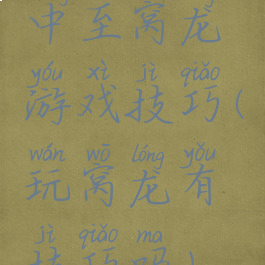 中至窝龙
yóu xì jì qiǎo
游戏技巧(
wán wō lóng yǒu
玩窝龙有
jì qiǎo ma
技巧吗)